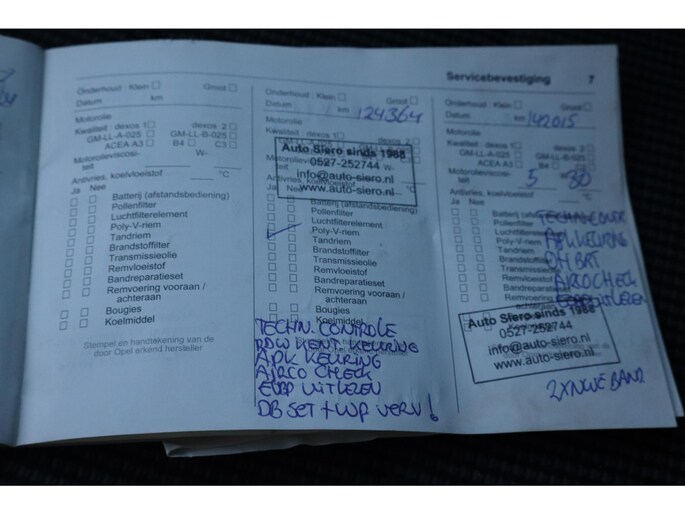 Servicebevestiging 7
Onderhoud : Klein Groot
Datum km
Motorolie
Kwaliteit : dexos 1 dexos 2
GM-LL-A-025 GM-LL-B-025
ACEA A3 B4 C3
Motorolieviscosi-
teit W-
Antivries, koelvloeistof °C
Ja Nee
Batterij (afstandsbediening)
Pollenfilter
Luchtfilterelement
Poly-V-riem
Tandriem
Brandstoffilter
Transmissieolie
Remvloeistof
Bandreparatieset
Remvoering vooraan /
achteraan
Bougies
Koelmiddel
Stempel en handtekening van de
door Opel erkend hersteller
Onderhoud : Klein Groot
Datum km 124364
Motorolie
Kwaliteit : dexos 1 dexos 2
GM-LL-A-025 GM-LL-B-025
Auto Siero sinds 1988
0527-252744
info@auto-siero.nl
www.auto-siero.nl
Motorolieviscosi-
teit W-
Antivries, koelvloeistof °C
Ja Nee
Batterij (afstandsbediening)
Pollenfilter
Luchtfilterelement
Poly-V-riem
Tandriem
Brandstoffilter
Transmissieolie
Remvloeistof
Bandreparatieset
Remvoering vooraan /
achteraan
Bougies
Koelmiddel
TECHN. CONTROLE
APK KEURING
AIRCO CHECK
UITLEZEN
DB SET + WP VERV!
Onderhoud : Klein Groot
Datum km 142015
Motorolie
Kwaliteit : dexos 1 dexos 2
GM-LL-A-025 GM-LL-B-025
ACEA A3 B4 C3
Motorolieviscosi-
teit 5 W- 30
Antivries, koelvloeistof °C
Ja Nee
Batterij (afstandsbediening)
Pollenfilter
Luchtfilterelement
Poly-V-riem
Tandriem
Brandstoffilter
Transmissieolie
Remvloeistof
Bandreparatieset
Remvoering
APK KEURING
OH BRT
AIRCO CHECK
UITLEZEN
Auto Siero sinds 1988
0527-252744
info@auto-siero.nl
www.auto-siero.nl
2X NWE BAND